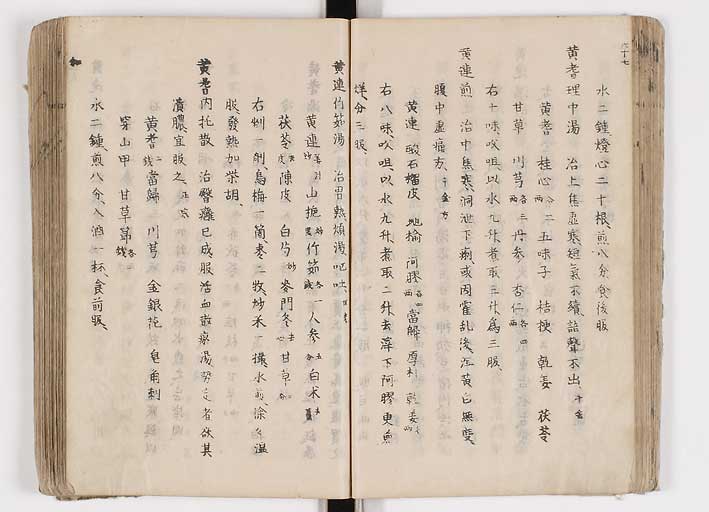 六十七
水二鍾燈心二十根煎八分食後服
黄耆理中湯 治上焦虚寒短氣不續語聲不出、千金
黄耆 桂心各二兩 五味子 桔梗 乾姜 茯苓
甘草 川芎各三兩 丹参 杏仁各四兩
右十味㕮咀以水九升煮取三升爲三服
黄連煎 治中焦寒洞泄下痢或因霍乱後瀉黄白無度
腹中虚痛方、千金方
黄連 酸石榴皮 地榆 阿膠各四兩 當歸 厚朴 乾姜
右八味㕮咀以水九升煮取三升去滓下阿膠更煎
烊分三服、
黄連竹筎湯 治胃熱煩渇嘔吐
黄連 山梔 竹筎 人参 白术
茯苓去皮 陳皮 白芍炒 麥門冬去心 甘草
右剉 烏梅一箇棗二枚炒禾 撮水煎徐々温
服發熱加柴胡、
黄耆内托散 治臀癰已成服活血散瘀湯勢定者欲其
潰膿宜服之、正宗
黄耆 當歸 川芎 金銀花 皂角刺
穿山甲 甘草節
水二鍾煎八分、入酒一杯、食前服、